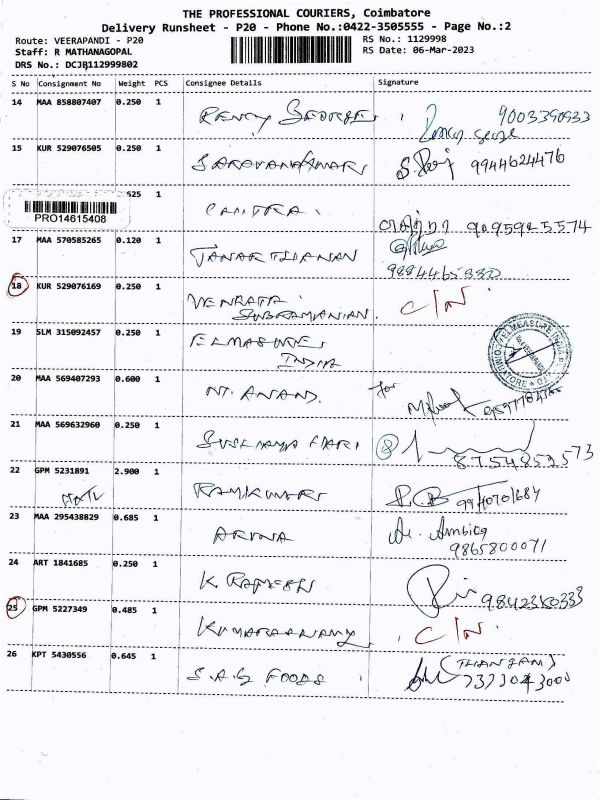 THE PROFESSIONAL COURIERS, Coimbatore
Delivery Runsheet - P20 - Phone No.:0422-3505555 - Page No.:2
Route: VEERAPANDI - P20
Staff: R MATHANAGOPAL
DRS No.: DCJB112999802
RS No.: 1129998
RS Date: 06-Mar-2023
S No Consignment No Weight PCS Consignee Details Signature
14 MAA 858807407 0.250 1 RENCY GEORGE 9003390933
15 KUR 529076505 0.250 1 SARAVANAKUMAR 9944624476
PRO14615408
CHITRA
17 MAA 570585265 0.120 1 JANARTHANAN
18 KUR 529076169 0.250 1 VENKATA SUBRAMANIAN. C/N.
19 SLM 315092457 0.250 1 ELMEASURE INDIA
20 MAA 569407293 0.600 1 M. ANAND. for
21 MAA 569632960 0.250 1 HARI 8754852573
22 GPM 5231891 2.900 1 RAMKUMAR
23 MAA 295438829 0.685 1 ARUNA Ambiga
9865800071
24 ART 1841685 0.250 1 K. RAMESH 9842350333
25 GPM 5227349 0.485 1 KUMARASAMY C/N.
26 KPT 5430556 0.645 1 S.A.G FOODS (THANGAM)
7373043000